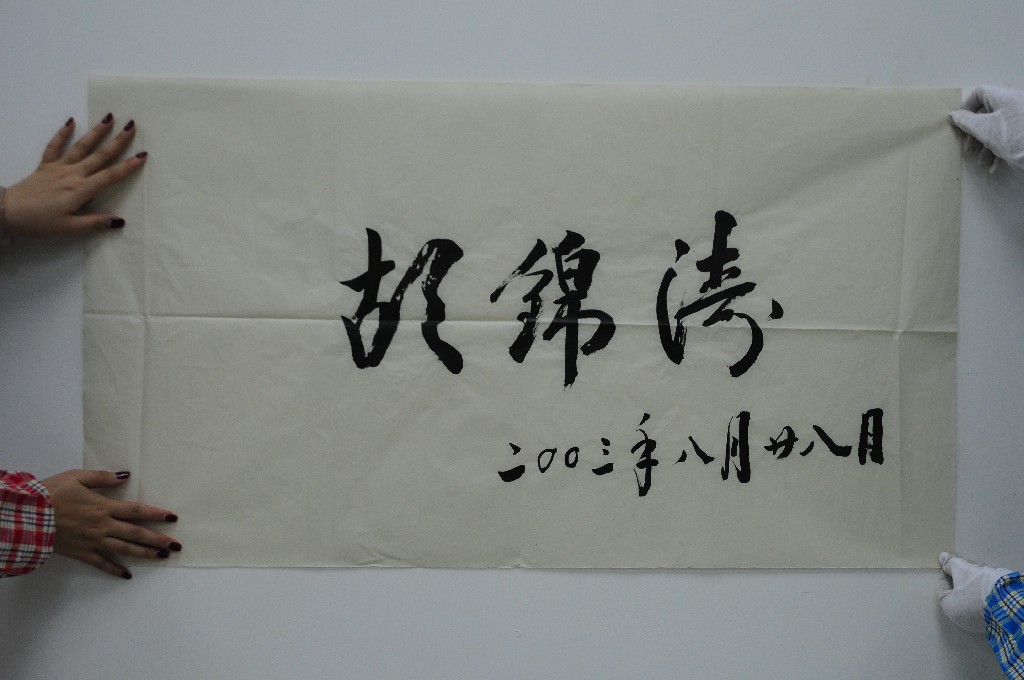 胡锦涛
二〇〇三年八月廿八日